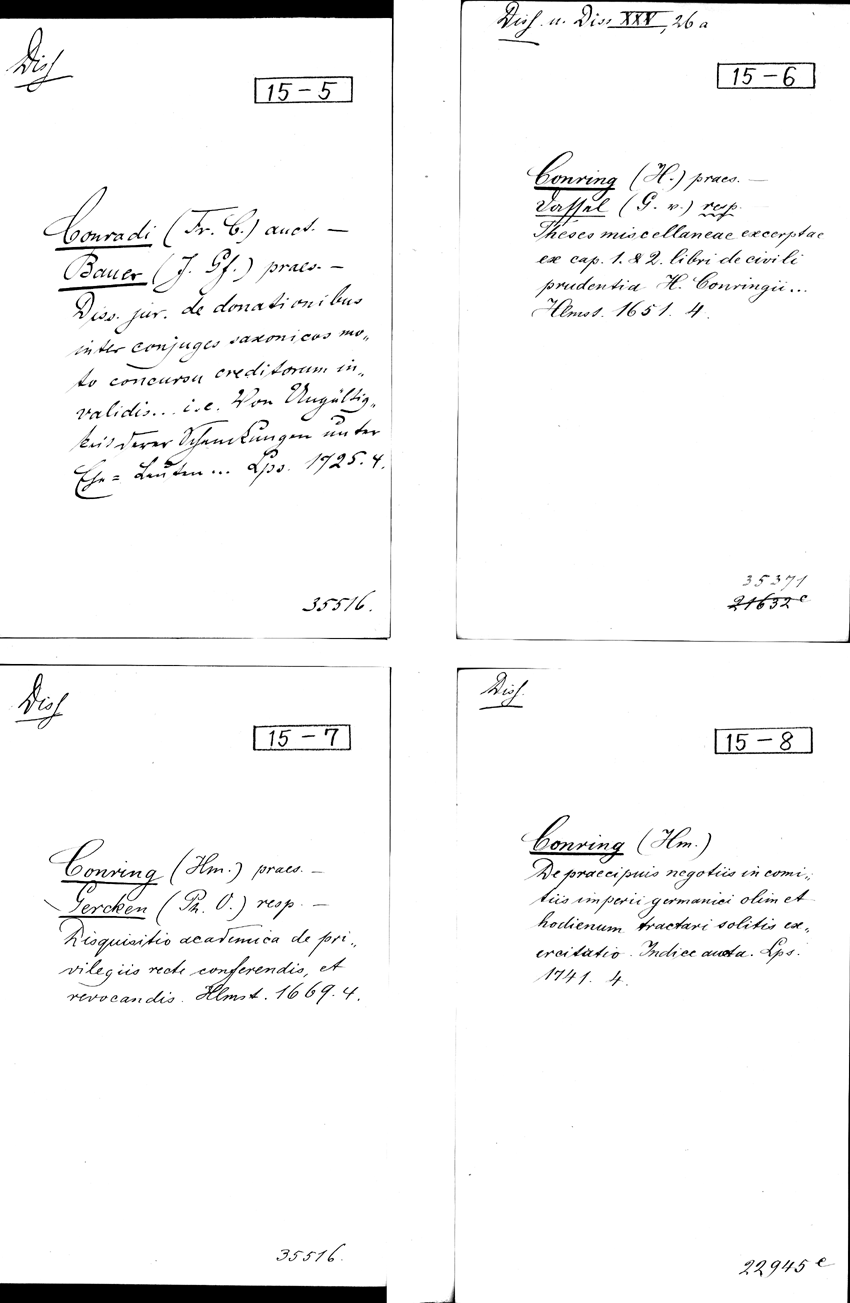 Diss
15-5
Conradi (Fr. C.) auct. —
Bauer (J. Gf.) praes. —
Diss. jur. de donationibus
inter conjuges saxonicos mo„
to concursu creditorum in„
validis... i.e. Von Ungültig„
keit derer Schenckungen unter
Ehe= Leuten... Lps. 1725. 4.
35516.
Diss. u. Diss XXV, 26a
15-6
Conring (H.) praes. —
(G. v.) resp.
Theses miscellaneae excerptae
ex cap. 1. & 2. libri de civili
prudentia H. Conringii...
Hlmst. 1651. 4.
35371
21632c
Diss
15-7
Conring (Hm.) praes. —
Gercken (Ph. O.) resp. —
Disquisitio academica de pri„
vilegiis recte conferendis, et
revocandis. Hlmst. 1669. 4.
35516.
Diss.
15-8
Conring (Hm.)
De praecipuis negotiis in comi„
tiis imperii germanici olim et
hodienum tractari solitis ex„
ercitatio. Indice aucta. Lps.
1741. 4.
22945e